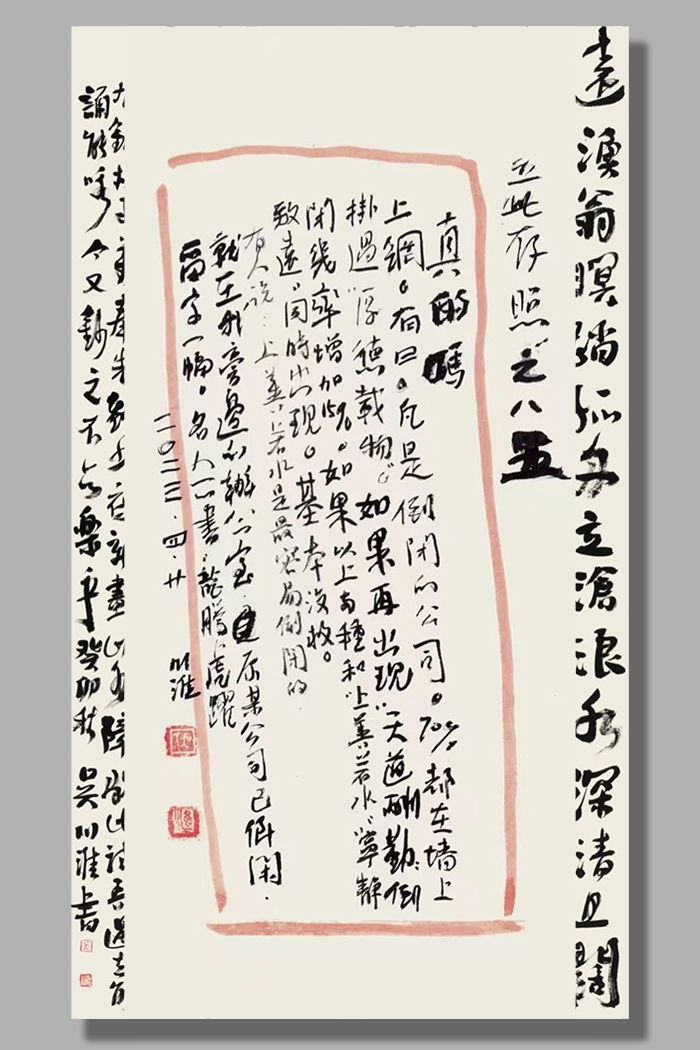 遠漁翁暝踏孤舟立滄浪水深清且闊
立此存照之八五
真的嗎
上網。有曰。凡是倒閉的公司。70%都在墻上
掛過"厚德載物"。如果再出現"天道酬勤"倒
閉幾率增加15%。如果以上两種和"上善若水""寧靜
致遠"同時出現。基本沒救。
有人說:上善若水是最容易倒閉的.
就在我旁邊的辦公室.原某公司已倒閉.
留字一幅。名人所書"龍騰虎躍
二〇二三.四.廿 川淮
新畫山水障
誦能 今又鈔之不亦樂乎癸卯秋 吳川淮